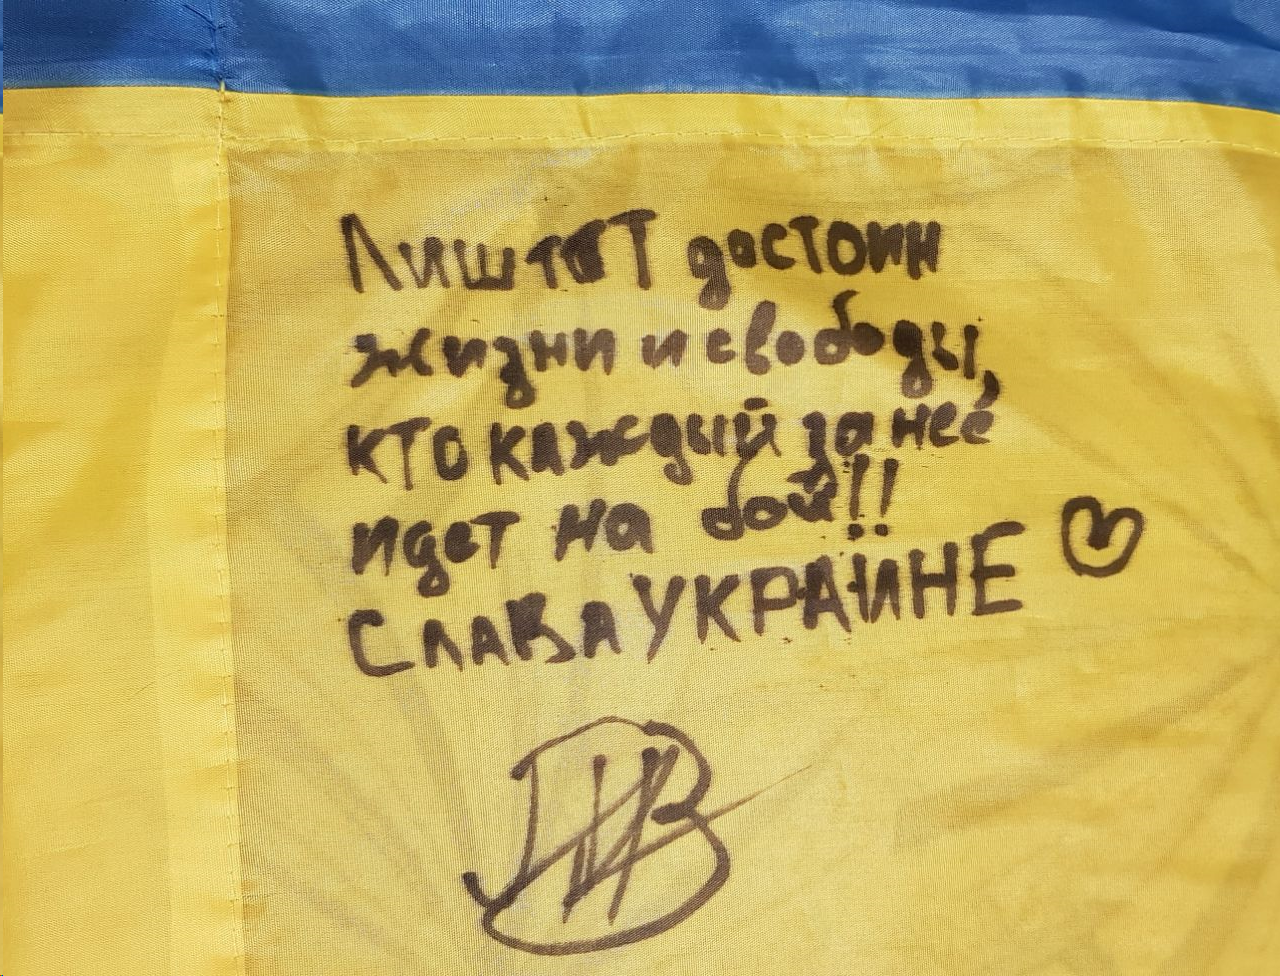 Лиш тот достоин
жизни и свободы,
кто каждый за неё
идет на бой!!
СЛАВА УКРАИНЕ